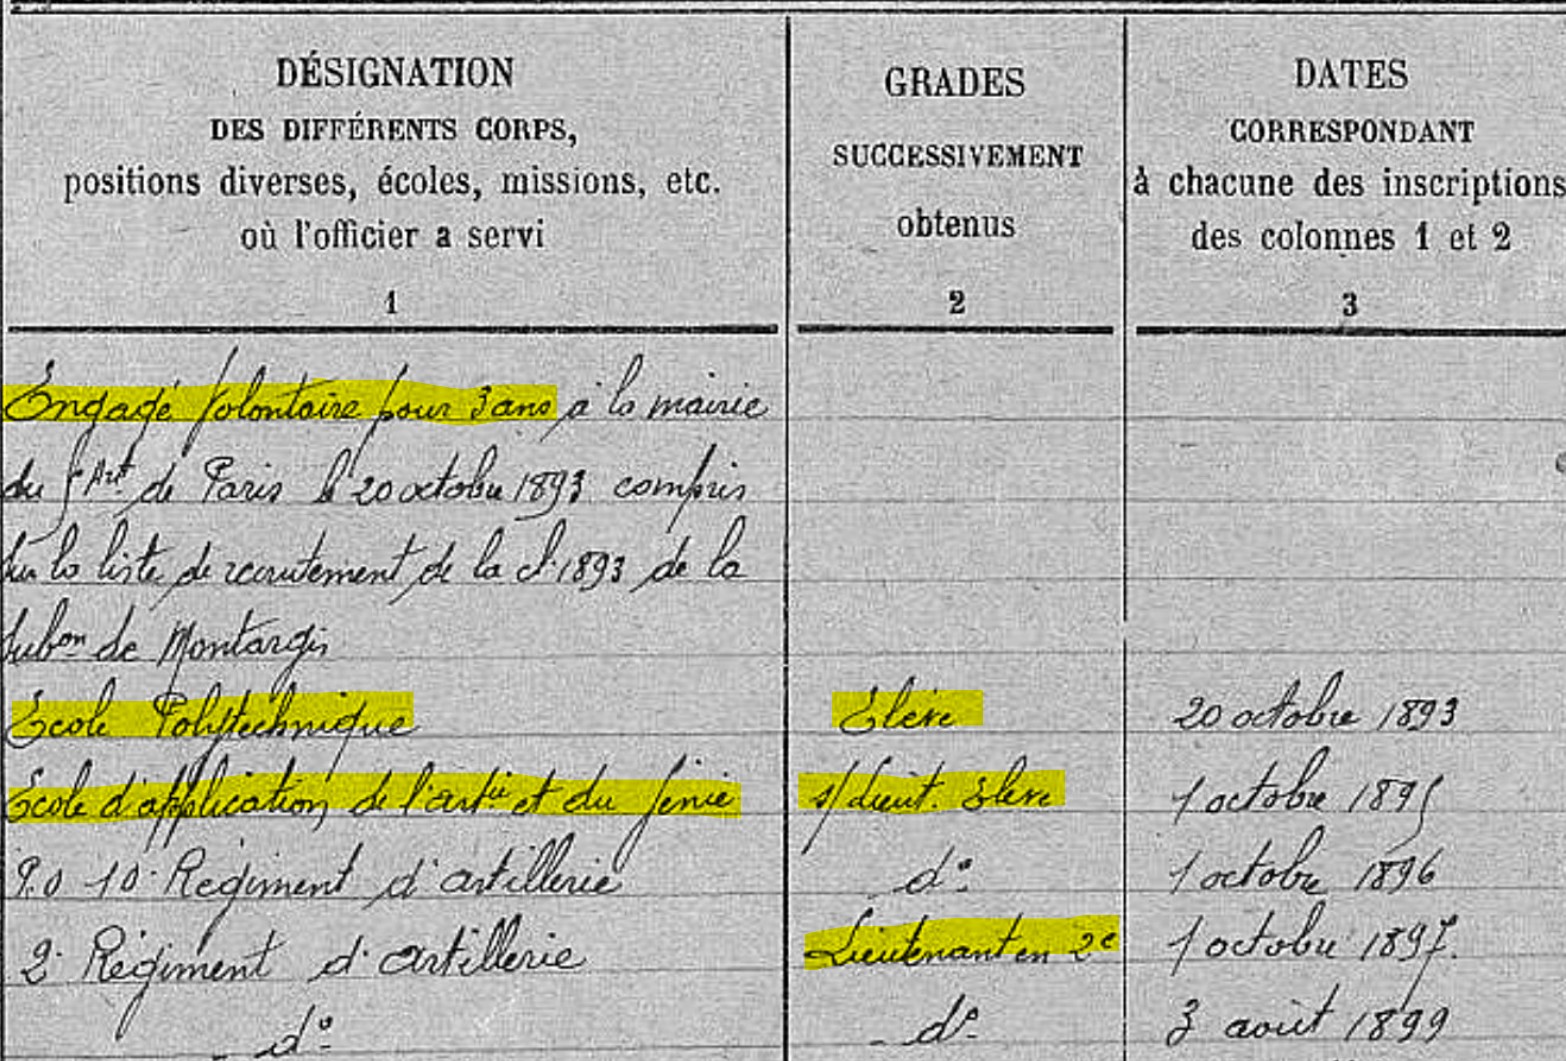 DÉSIGNATION
DES DIFFÉRENTS CORPS,
positions diverses, écoles, missions, etc.
où l'officier a servi
1
GRADES
SUCCESSIVEMENT
obtenus
2
DATES
CORRESPONDANT
à chacune des inscriptions
des colonnes 1 et 2
3
Engagé volontaire pour 3 ans à la mairie
du 5e Art de Paris le 20 octobre 1893 compris
sur la liste de recrutement de la cl. 1893 de la
subon de Montargis
Ecole Polytechnique Elève 20 octobre 1893
Ecole d'application de l'artie et du Génie s/lieut. Elève 1 octobre 1895
10e Régiment d'artillerie do 1 octobre 1896
2e Régiment d'artillerie Lieutenant en 2e 1 octobre 1897.
do do 3 août 1899